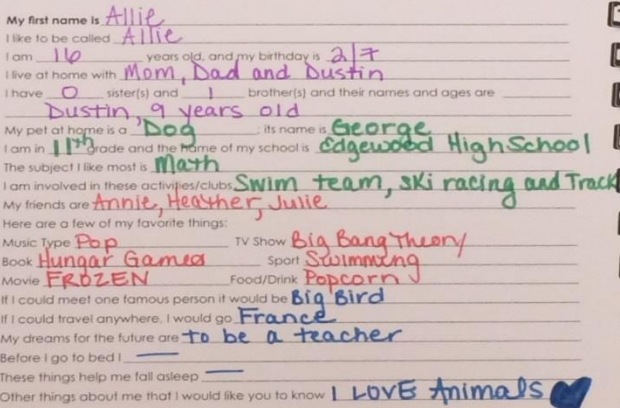 My first name is Allie
I like to be called Allie
I am 16 years old, and my birthday is 2/7
I live at home with Mom, Dad and Dustin
I have 0 sister(s) and 1 brother(s) and their names and ages are
Dustin, 9 years old
My pet at home is a Dog : its name is George
I am in 11th grade and the name of my school is Edgewood High School
The subject I like most is Math
I am involved in these activities/clubs Swim team, ski racing and Track
My friends are Annie, Heather, Julie
Here are a few of my favorite things:
Music Type Pop TV Show Big Bang Theory
Book Hungar Games Sport Swimming
Movie FROZEN Food/Drink Popcorn
If I could meet one famous person it would be Big Bird
If I could travel anywhere, I would go France
My dreams for the future are to be a teacher
Before I go to bed I —
These things help me fall asleep —
Other things about me that I would like you to know I LOVE Animals